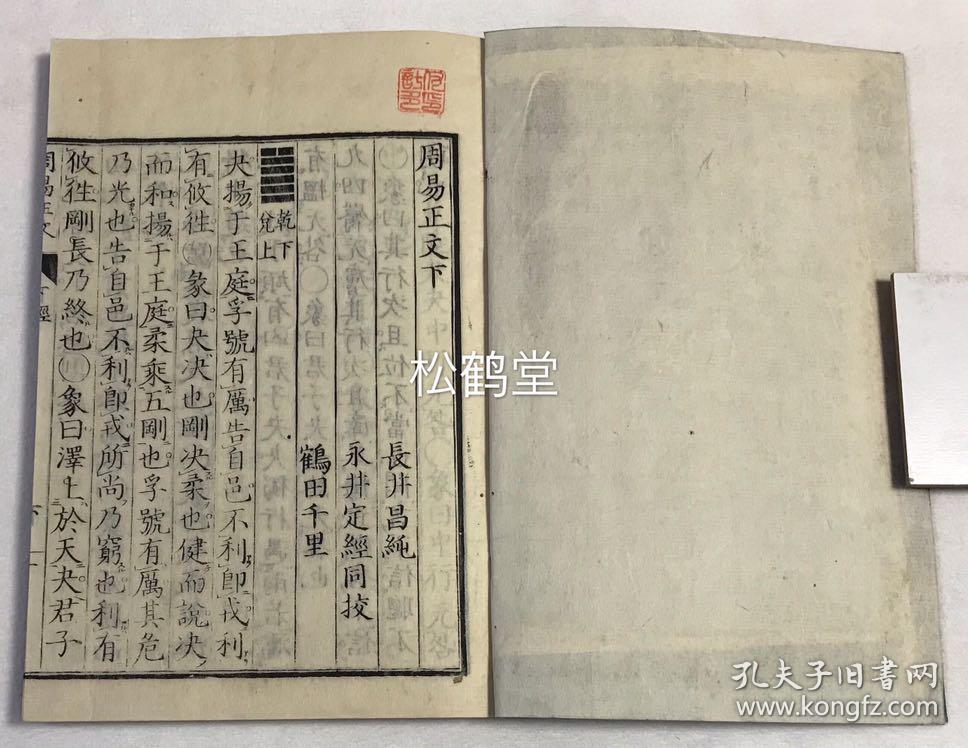 周易正文下
長井昌純
永井定經同挍
鶴田千里
乾下
兌上
夬揚于王庭孚號有厲告自邑不利即戎利
有攸徃○彖曰夬决也剛决柔也健而說决
而和揚于王庭柔乘五剛也孚號有厲其危
乃光也告自邑不利即戎所尚乃窮也利有
攸徃剛長乃終也○象曰澤上於天夬君子
周易正文 下經
松鹤堂
孔夫子旧书网
www.kongfz.com